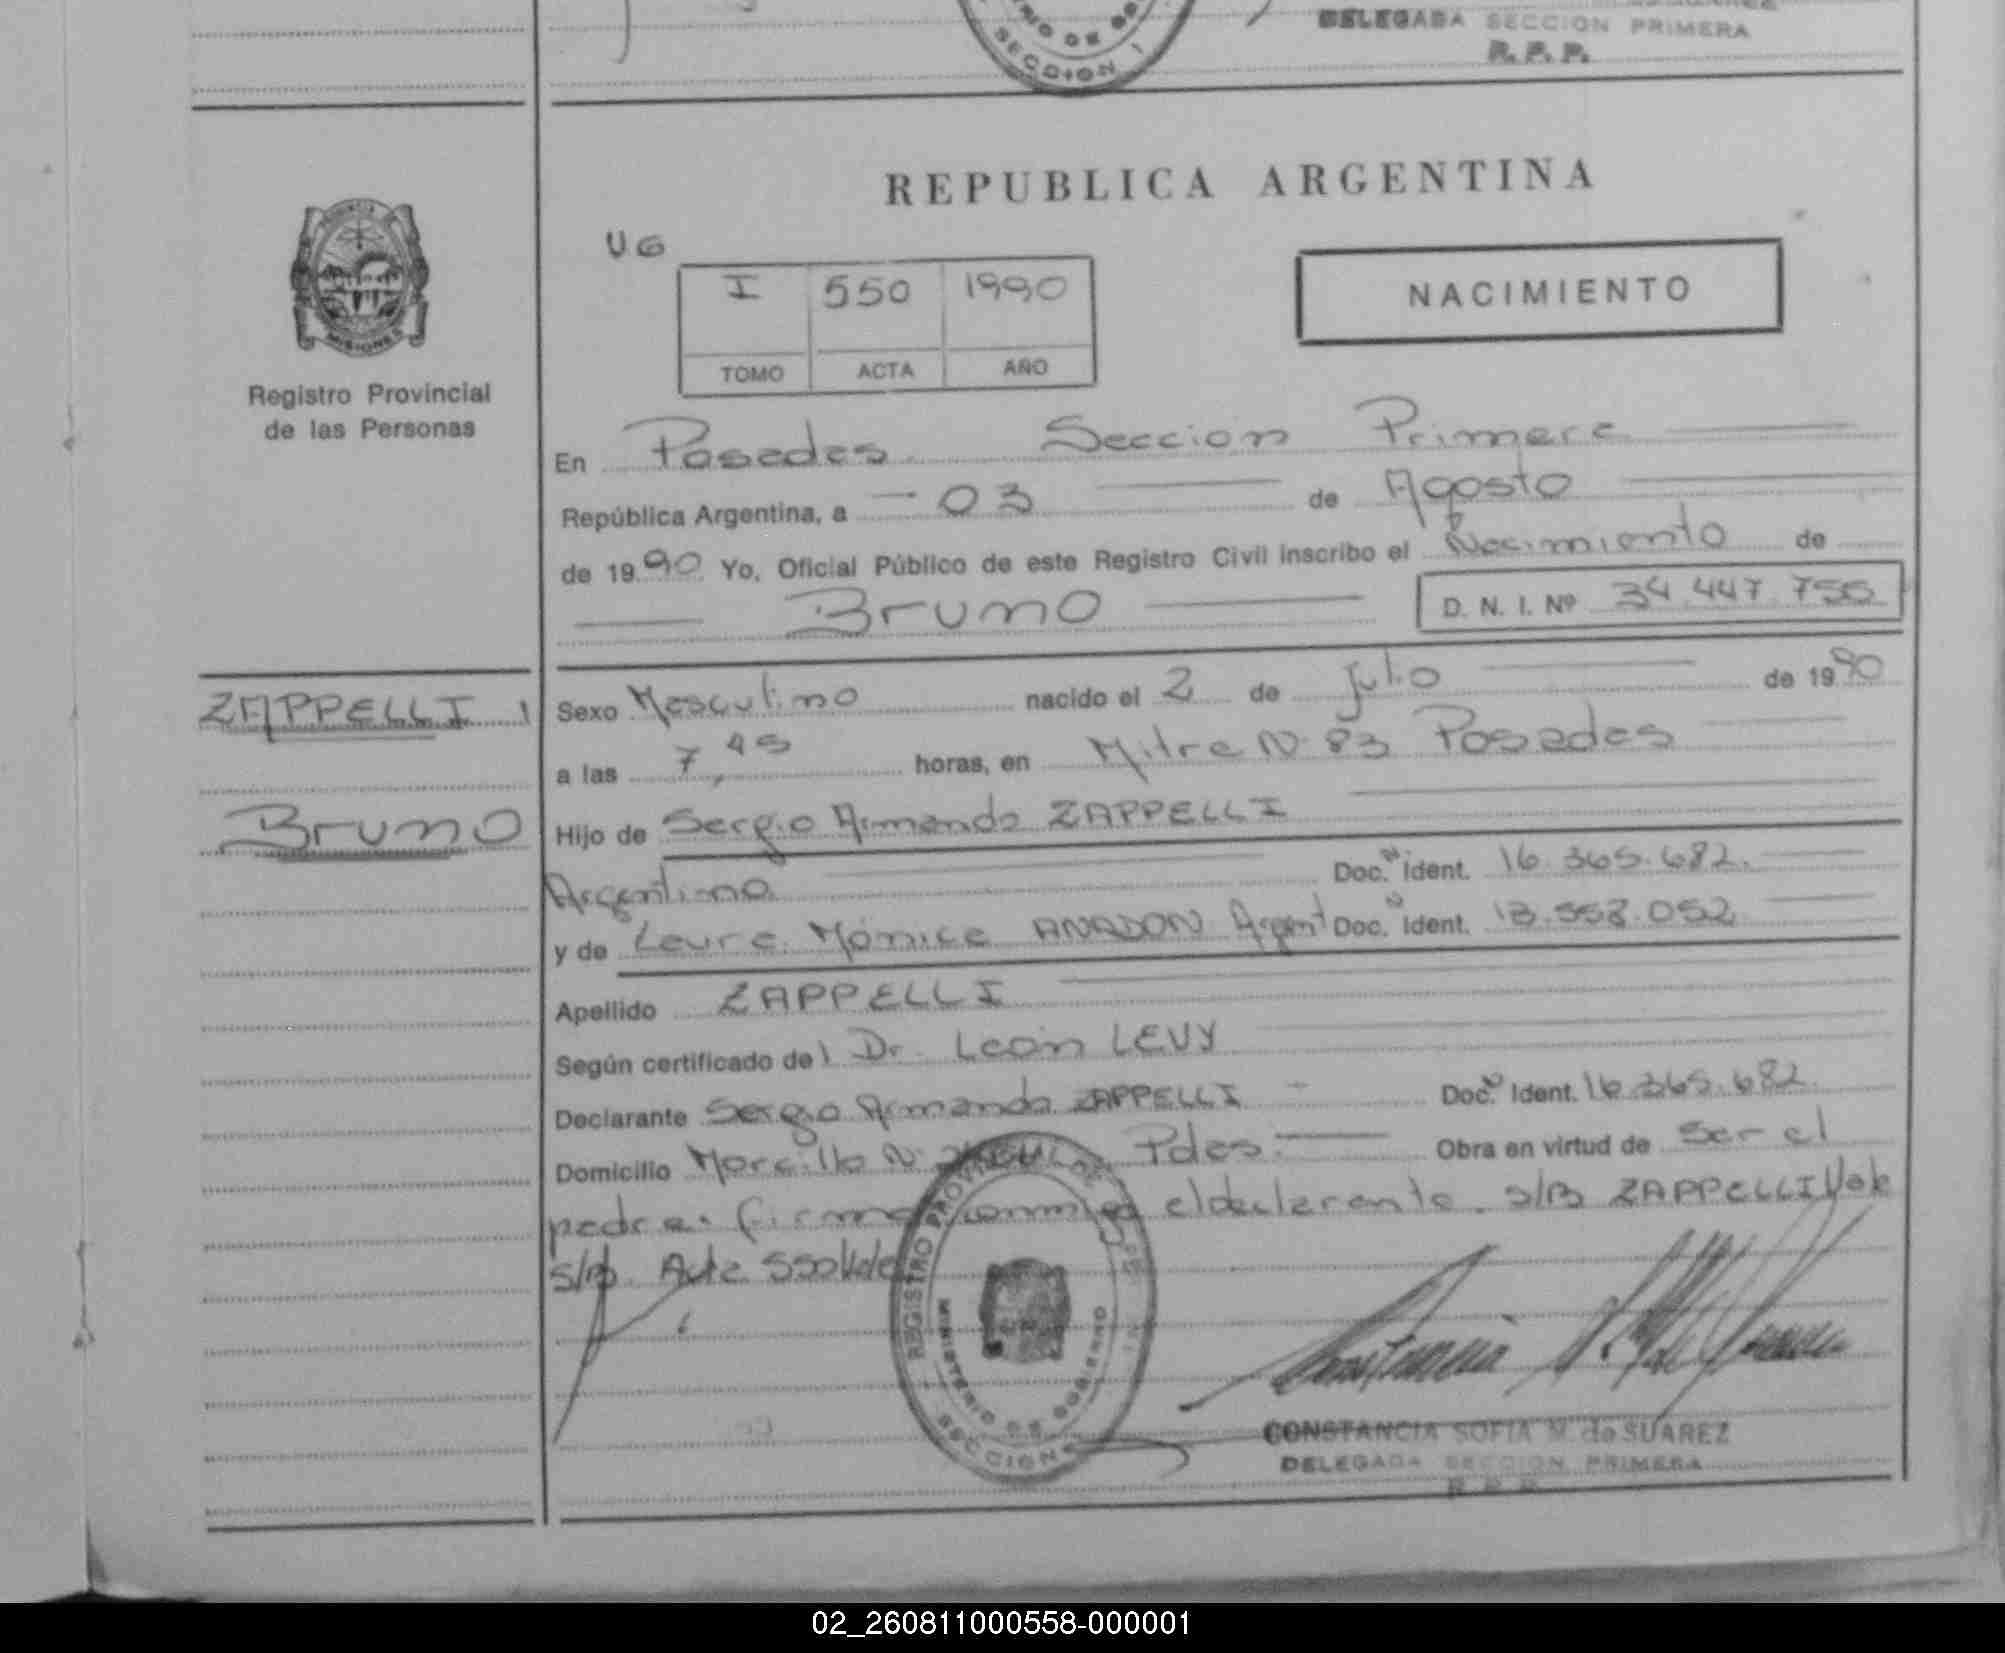 DELEGADA SECCION PRIMERA
R. P. P.
SECCION 1
REPUBLICA ARGENTINA
PROVINCIA
MISIONES
Registro Provincial
de las Personas
UG
I 550 1990
TOMO ACTA AÑO
NACIMIENTO
En Posadas Seccion Primera
República Argentina, a 03 de Agosto
de 1990 Yo, Oficial Público de este Registro Civil inscribo el Nacimiento de
Bruno D. N. I. Nº 34.447.756
ZAPPELLI,
Bruno
Sexo Masculino nacido el 2 de Julio de 1990
a las 7,45 horas, en Mitre N 83 Posadas
Hijo de Sergio Armando ZAPPELLI
Argentino Doc. N Ident. 16.365.682.
y de Laura Mónica ANADON Argent Doc. N Ident. 13.558.052
Apellido ZAPPELLI
Según certificado del Dr. León LEVY
Declarante Sergio Armando ZAPPELLI Doc. N Ident. 16.365.682
Domicilio N Pdas. Obra en virtud de ser el
padre. firma conmigo el declarante. s/B ZAPPELLI Vale
s/B. Acta 550 Vale
REGISTRO PROVINCIAL DE
MINISTERIO DE GOBIERNO
SECCION
CONSTANCIA SOFIA M. de SUAREZ
DELEGADA SECCION PRIMERA
R. P. P.
02_260811000558-000001